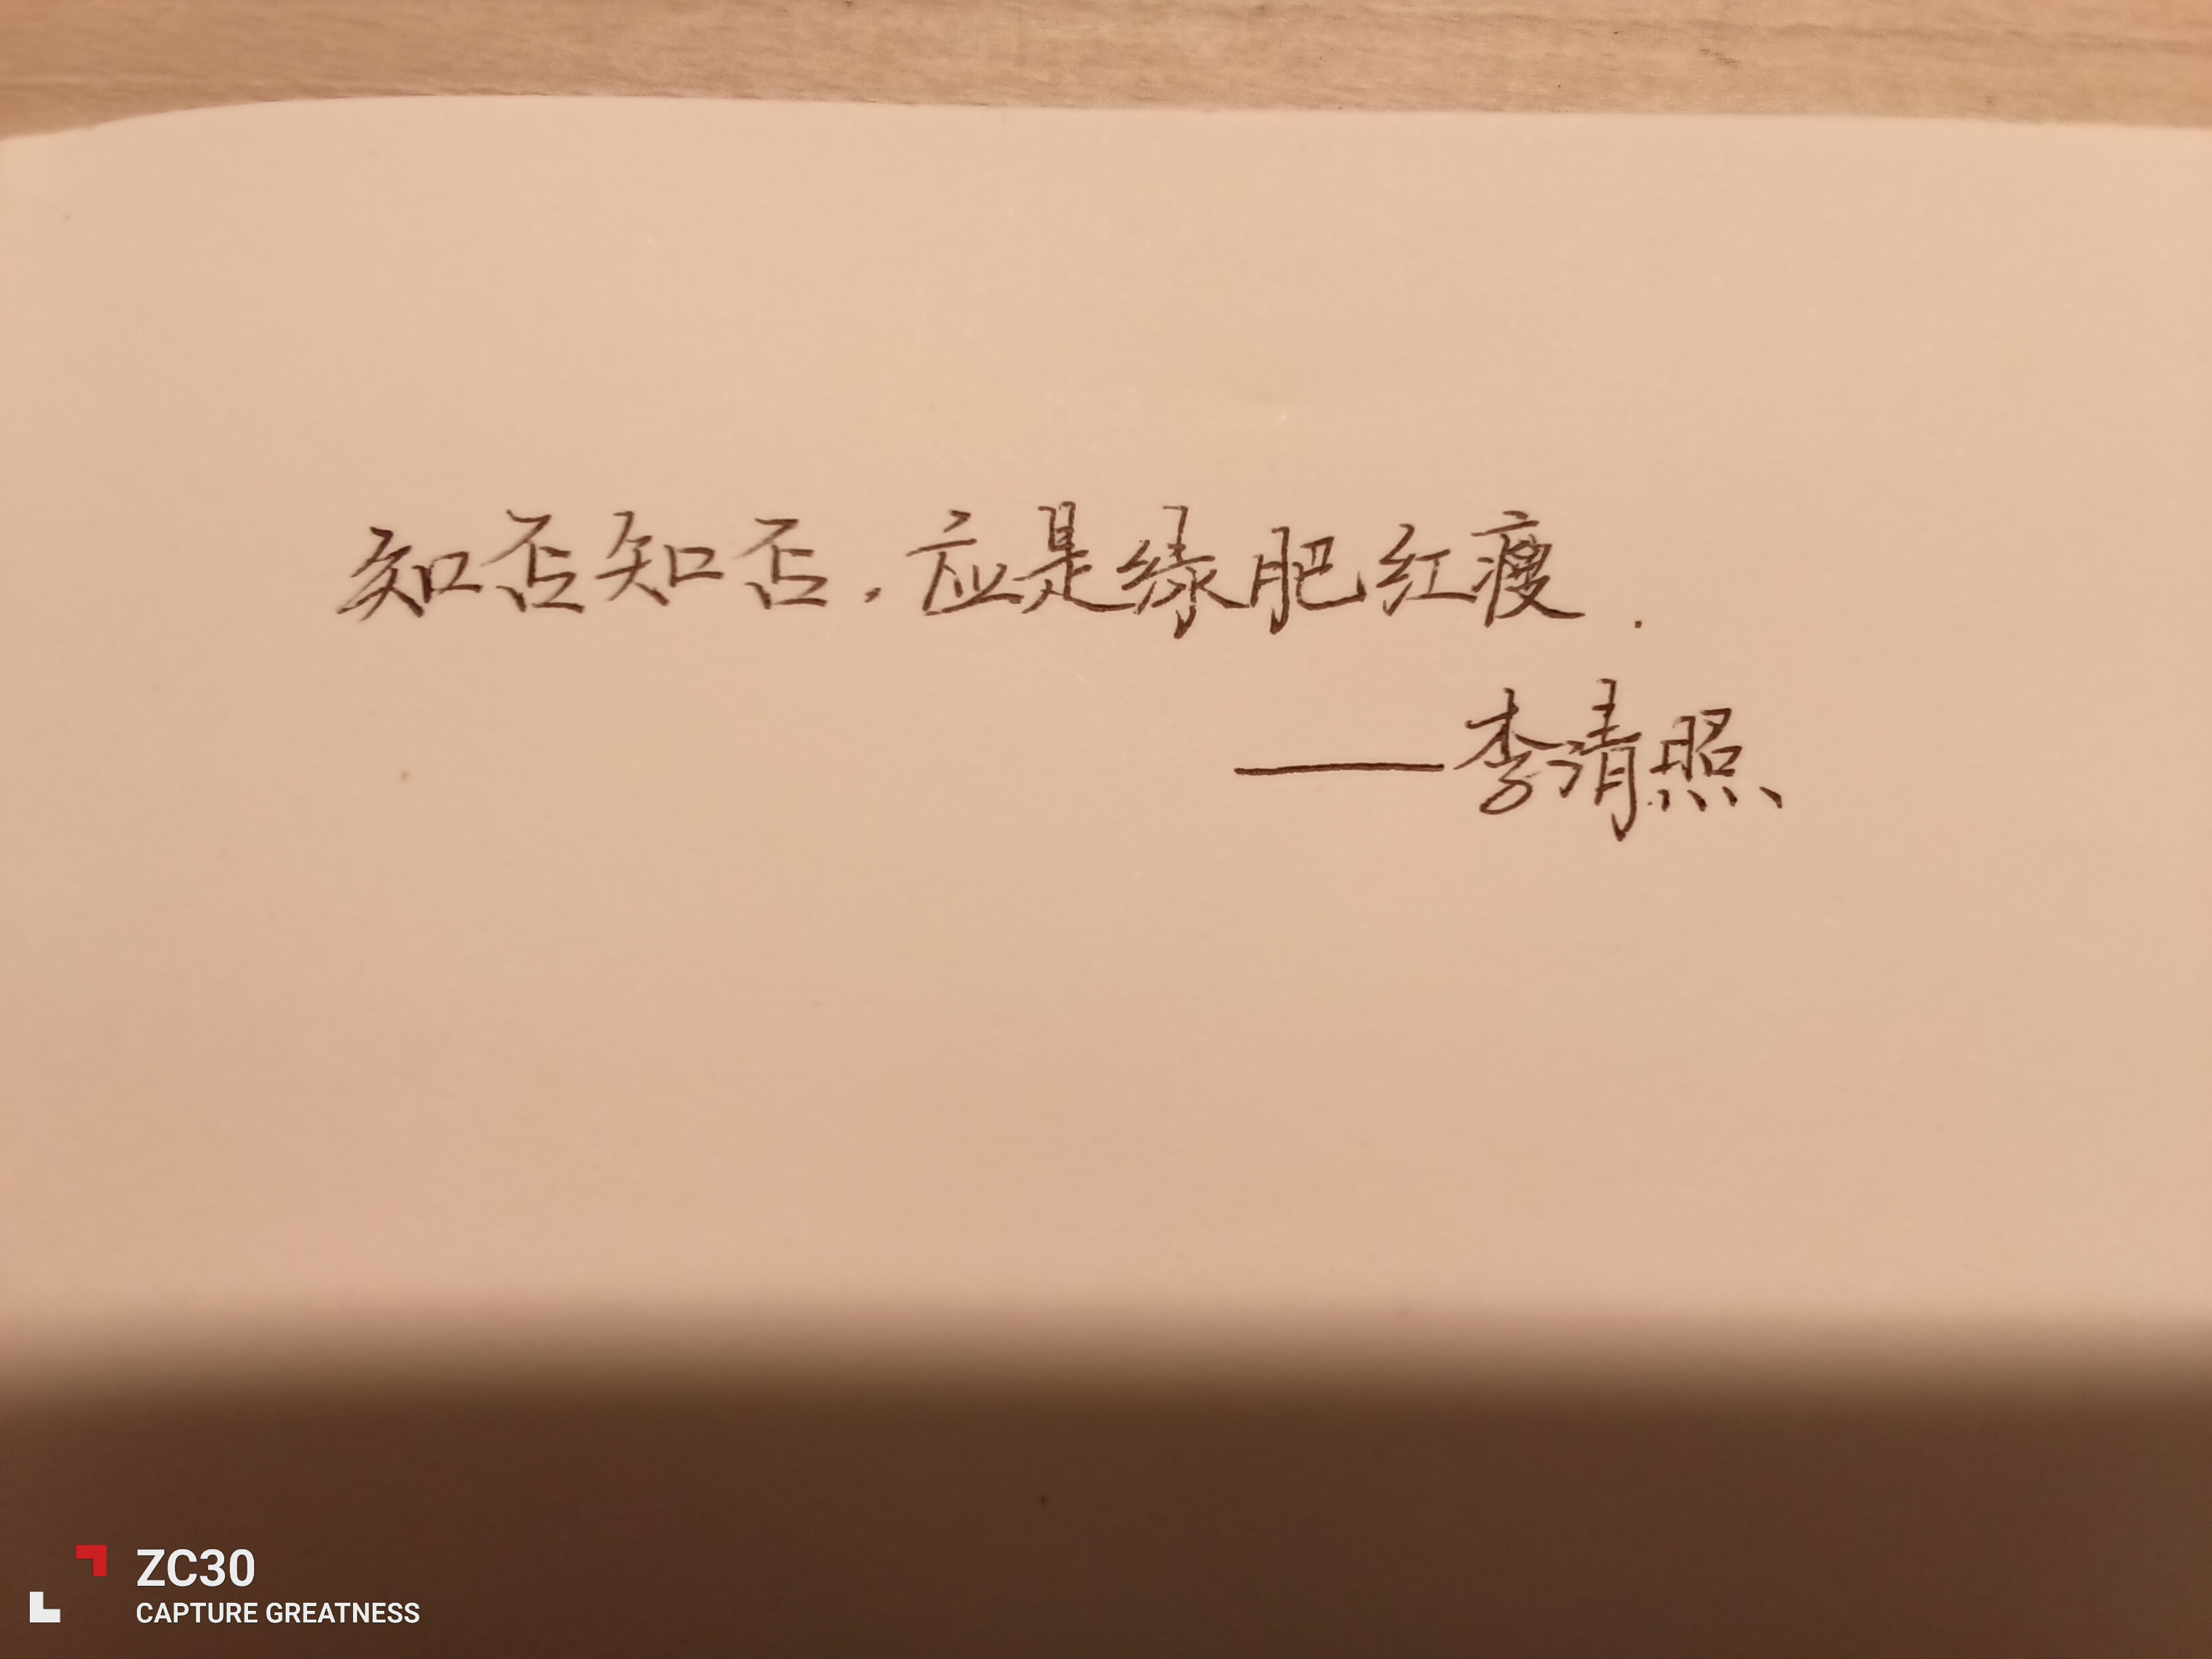 知否知否，应是绿肥红瘦.
——李清照
ZC30
CAPTURE GREATNESS